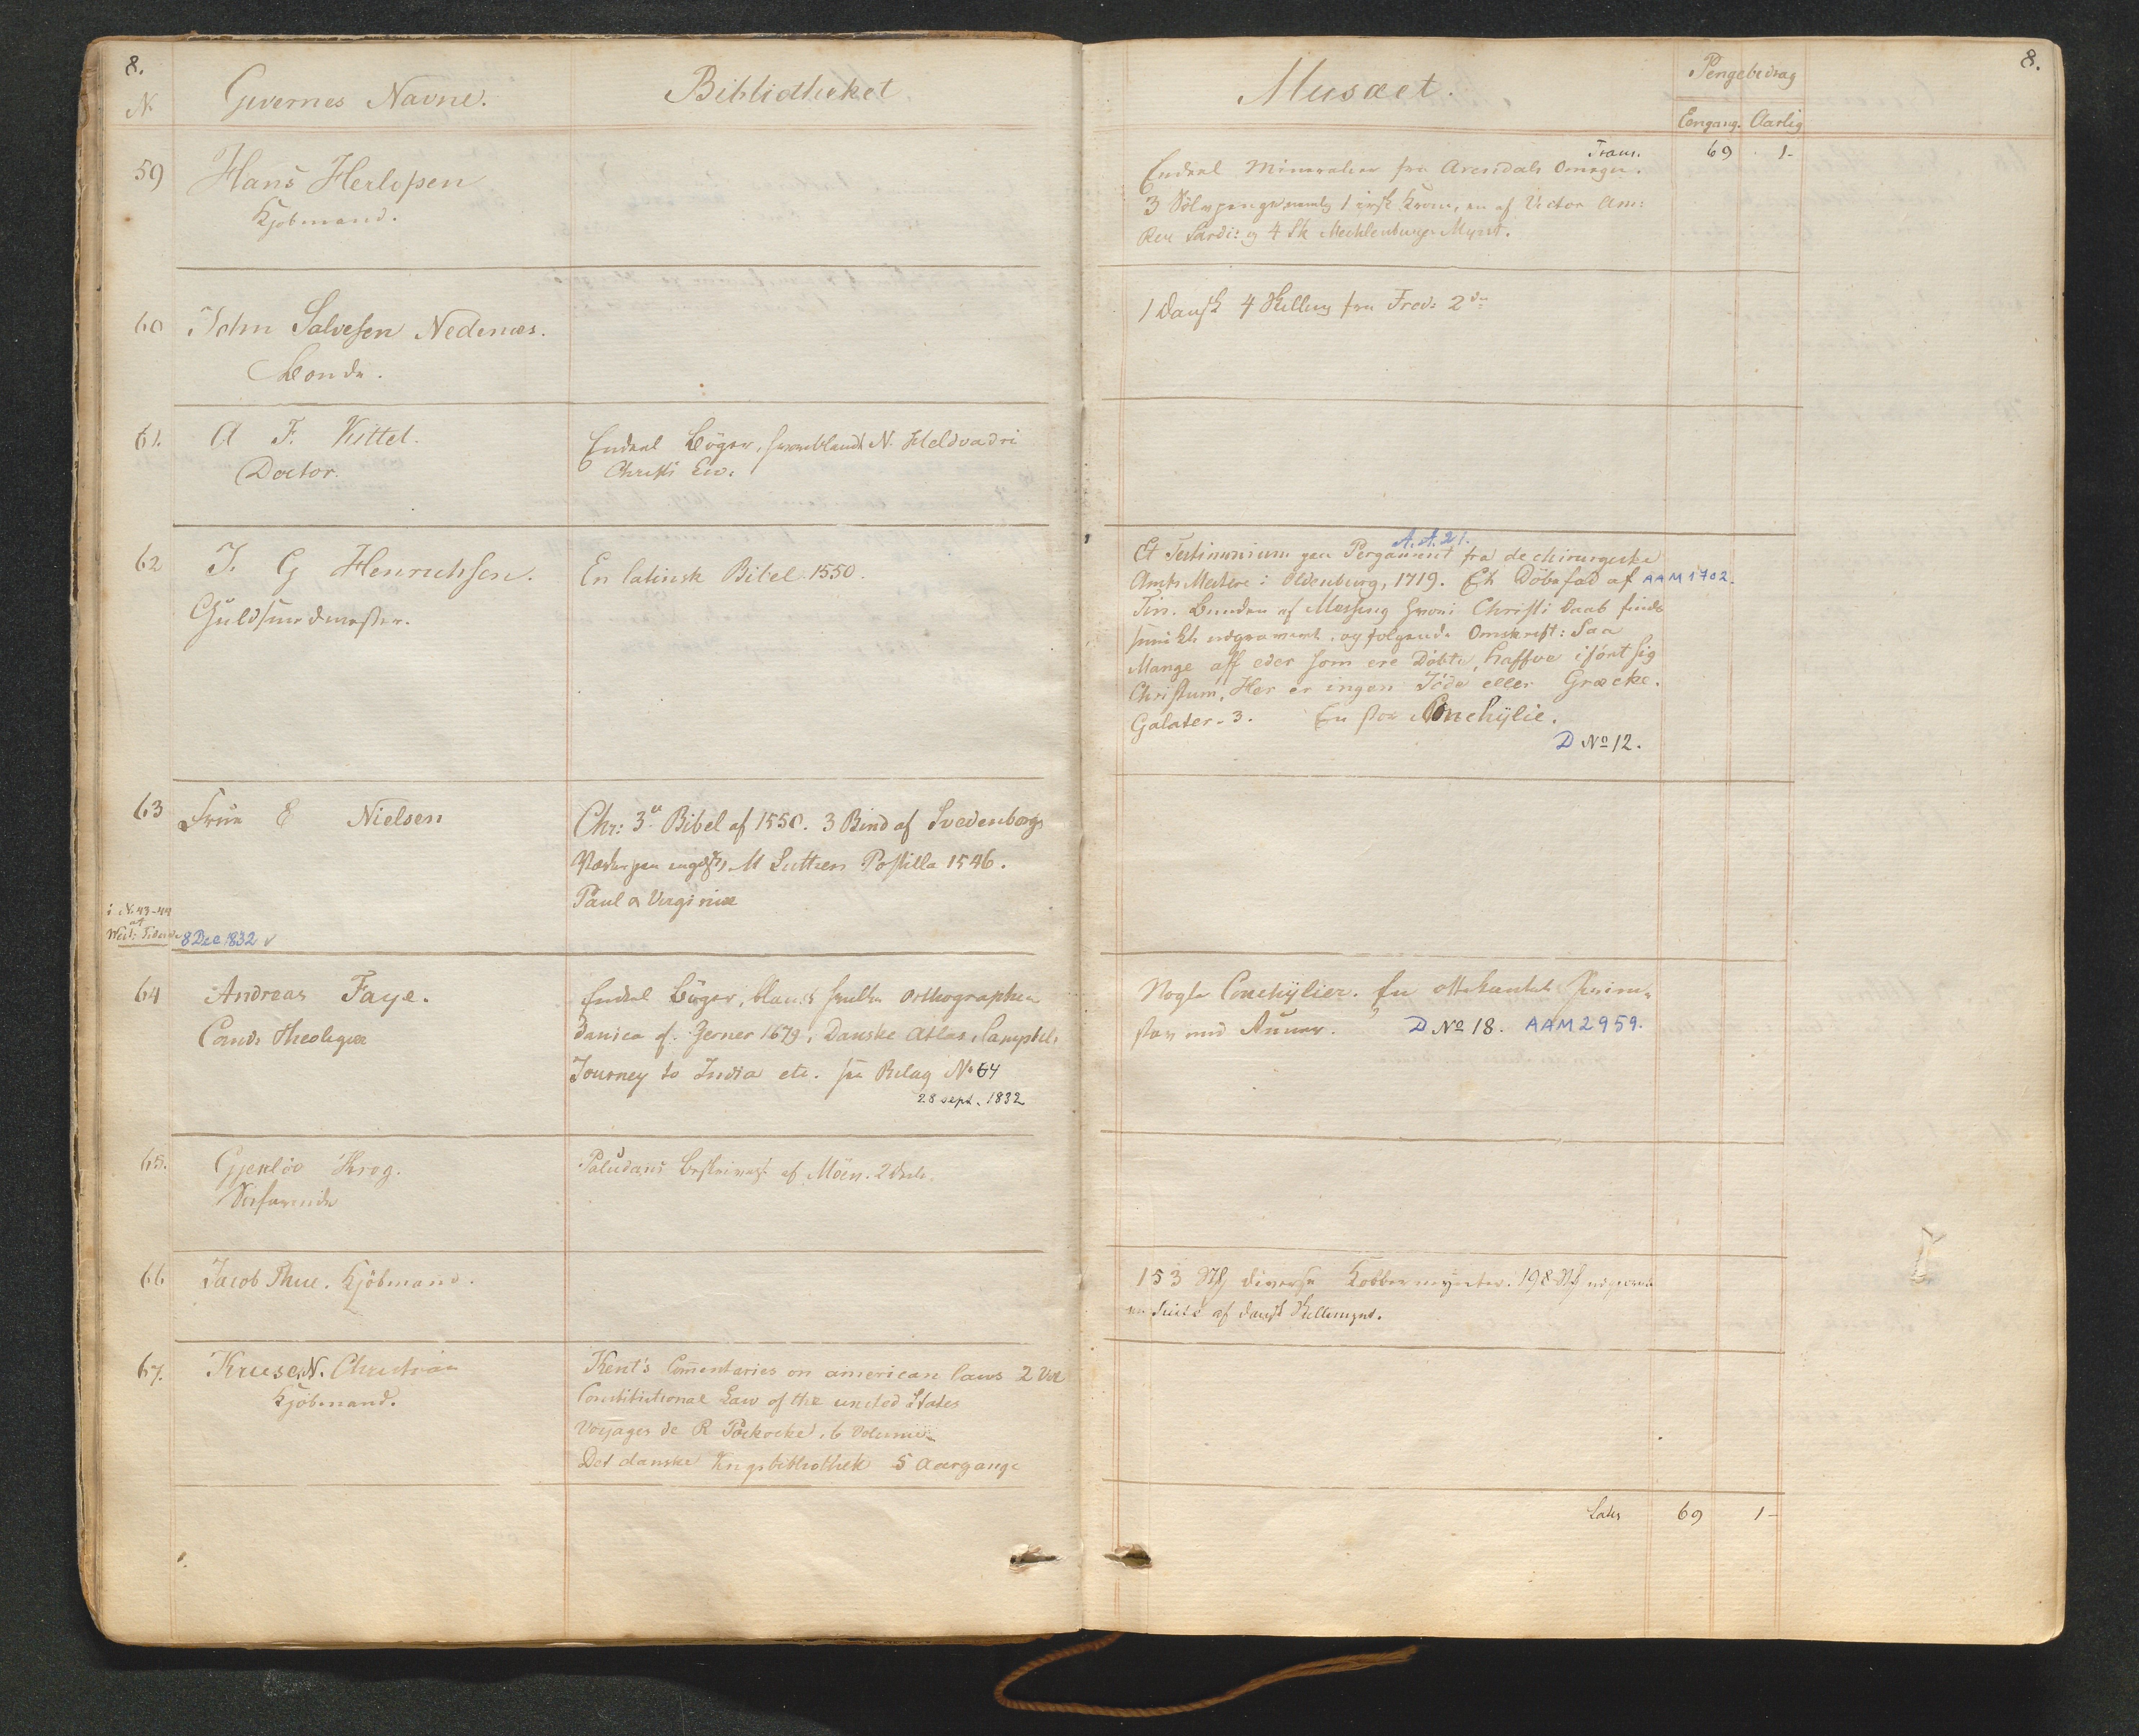 8.
N.
Givernes Navne.
Bibliotheket.
Musæet.
Pengebidrag
Eengang. Aarlig
8.
59
Hans Herlofsen
Kjöbmand.
Trans. 69 1-
Endeel Mineralier fra Arendals Omegn.
3 Sölvpenge nemlig 1 Krone, en af Victor Am:
Rex Sardi: og 4 Sk Mechlenburgs Mynt.
60
John Salvesen Nedenæs.
Bonde.
1 Dansk 4 Skilling fra Fred: 2den
61.
A F. Kittel.
Doctor.
Endeel Böger, hvoriblandt N. Heldvadri
Christi Ew:
62
J. G Henrichsen.
Guldsmedmester.
En latinsk Bibel 1550.
A.A.21.
Et Testimonium paa Pergament fra de chirurgiske
Amts Mestere i Oldenburg, 1719. Et Döbefad af AAM 1702.
Tin. Bunden af Messing hvori Christi Daab findes
smukt udgraveret, og fölgende Omskrift: Saa
Mange aff eder som ere Döbte, haffve ifört sig
Christum, Her er ingen Jöde eller Græcke.
Galater. 3. En stor Conchÿlie.
D No 12.
63
Frue E Nielsen
Chr: 3die Bibel af 1550. 3 Bind af Svedenborgs
Værker paa engelsk, M Luthers Postilla 1546.
Paul & Virginie
i N. 43-44
af
West: Tidende
8 Dec 1832 v
64
Andreas Faye.
Cand: Theologiæ
Endeel Böger, blandt hvilke Orthographia
danica af Gerner 1679, Danske Atlas, Campbel:
Journey to India etc. see Bilag No 64
28 sept. 1832
Nogle Conchÿlier. En ottekantet
med D No 18. AAM 2959.
65.
Gjenlöv Krog.
Söefarende
Paludans Beskrivelse af Möen. 2 Dele.
66
Jacob Thue. Kjöbmand.
153 Stk diverse Kobbermynter. 198 Stk
en Suite af dansk Skillemynt.
67.
Kruse N. Christian
Kjöbmand.
Kent's Commentaries on american laws 2 Vol
Constitutional Law of the united States
Voyages de R Pockocke, 6 Volumes
Det danske Krigsbibliothek 5 Aargange
Latus 69 1-